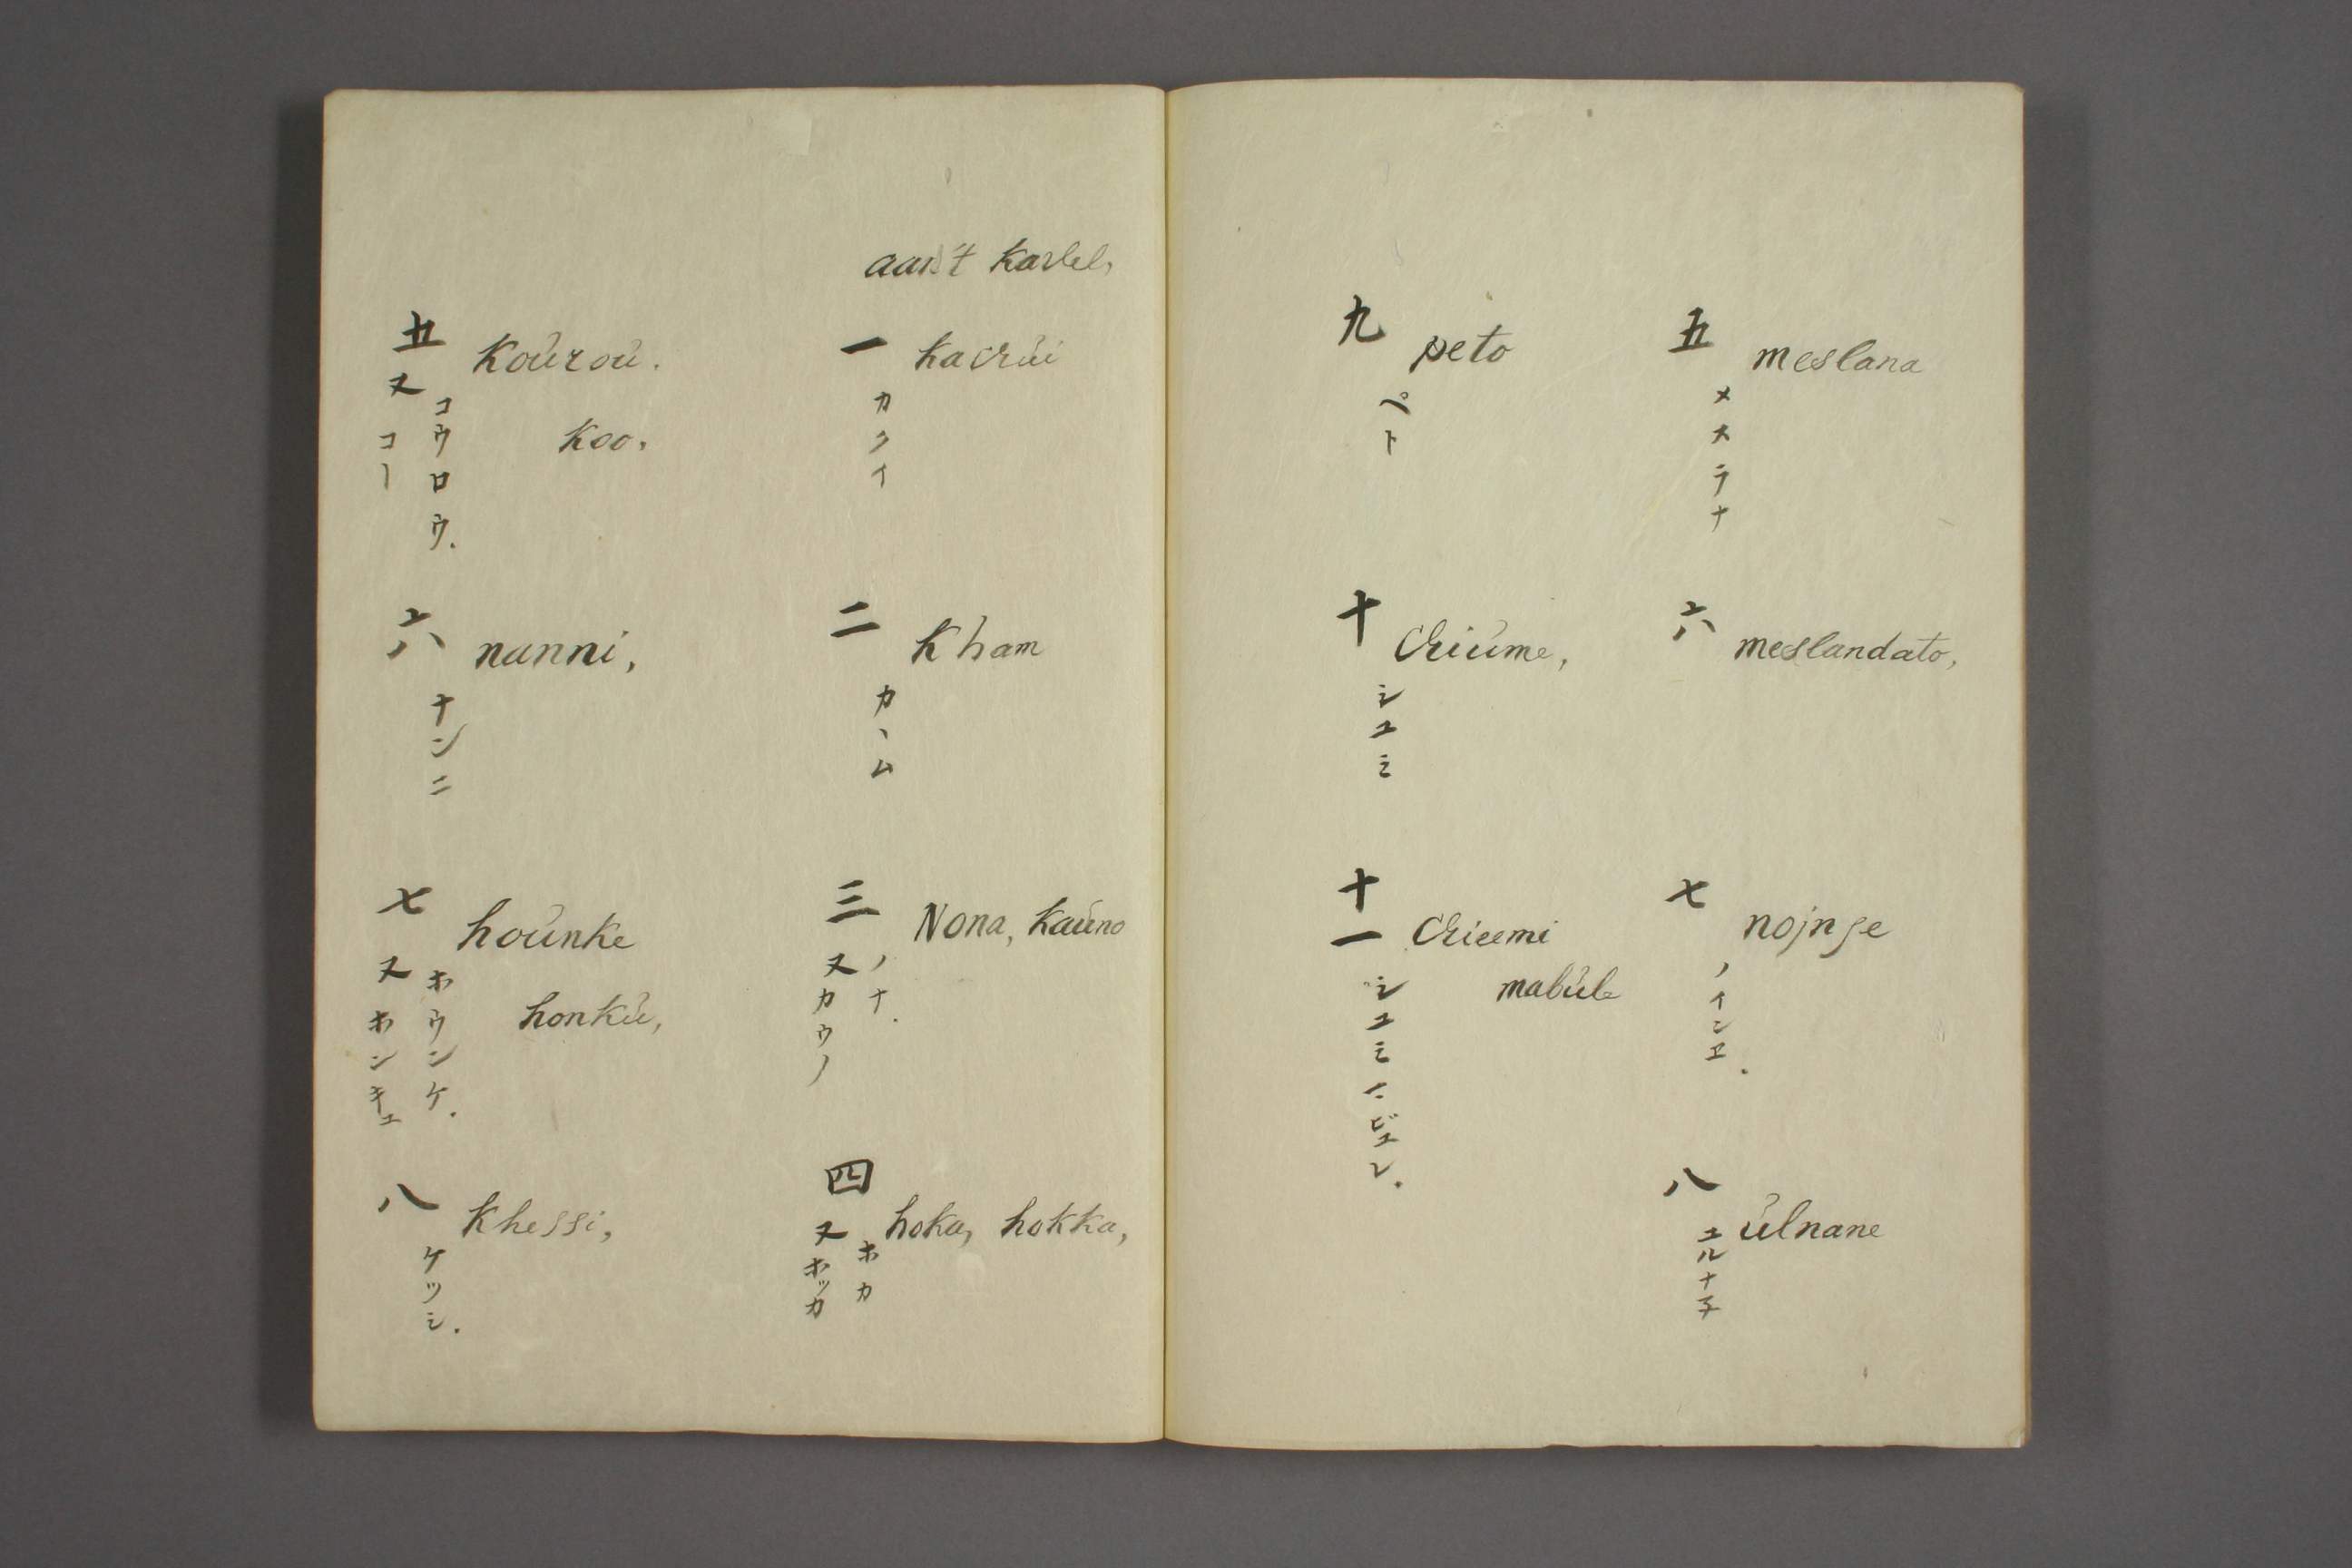 五 meslana
メスラナ
六 meslandato,
七 nojnse
ノインヱ.
八 úlnane
ユルナ子
九 peto
ペト
十 Chiúme,
シユミ
十一 Chieemi
mabúle
シユミマビユレ.
kaslel,
一 kacrúi
カクイ
二 Kham
カヽム
三 Nona, kaúno
ノナ.
又カウノ
四 hoka, hokka,
ホカ
又ホッカ
五 Koúroú.
コウロウ.
koo,
又コー
六 nanni,
ナンニ
七 hoúnke
ホウンケ.
honkú,
又ホンキユ
八 Khessi,
ケツシ.